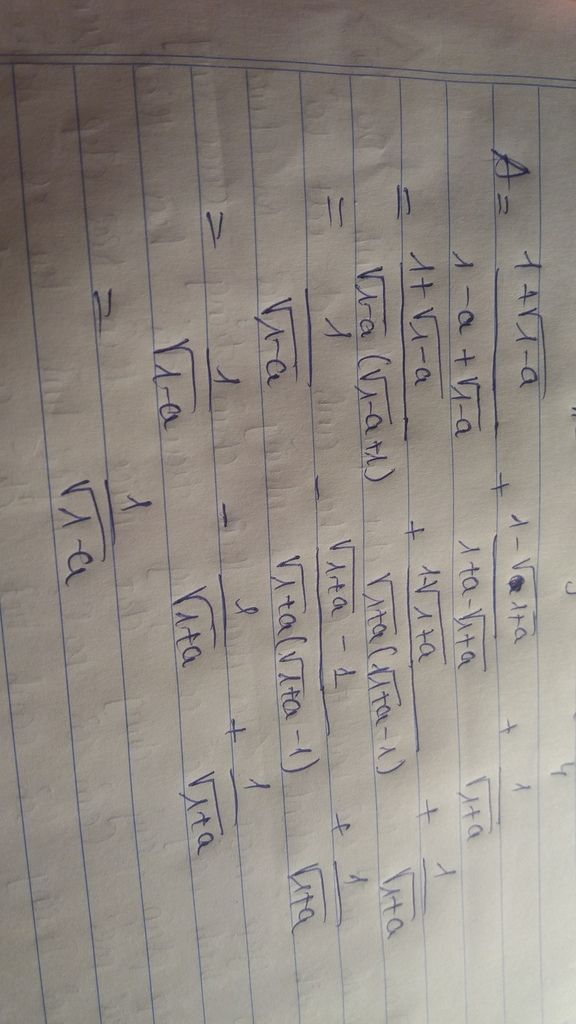 A = (1+√(1-a))/(1-a+√(1-a)) + (1-√(1+a))/(1+a-√(1+a)) + 1/√(1+a)
= (1+√(1-a))/(√(1-a)(√(1-a)+1)) + (1-√(1+a))/(√(1+a)(√(1+a)-1)) + 1/√(1+a)
= 1/√(1-a) - (√(1+a)-1)/(√(1+a)(√(1+a)-1)) + 1/√(1+a)
= 1/√(1-a) - 1/√(1+a) + 1/√(1+a)
= 1/√(1-a)